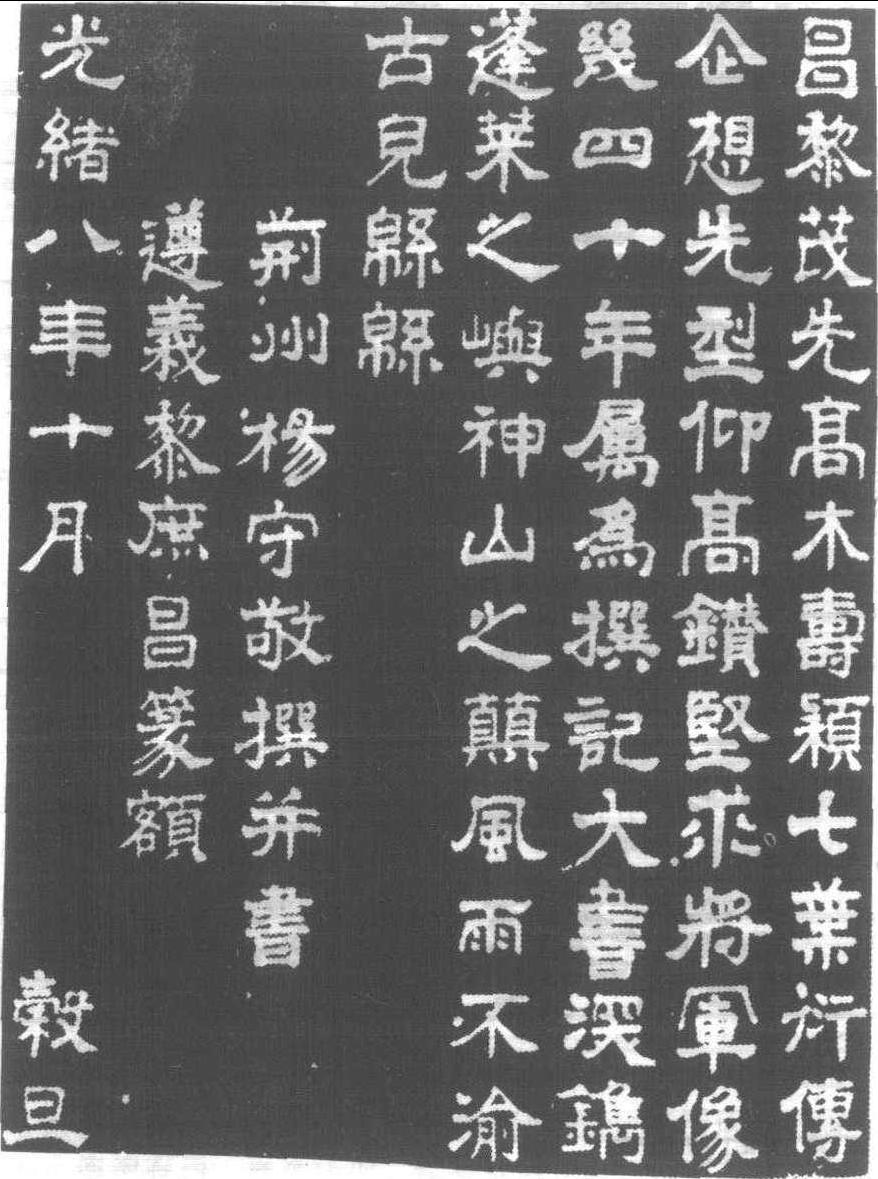 昌黎茂先高木壽穎七葉衍傳
企想先型仰高鑽堅求將軍像
幾四十年屬爲撰記大書深鐫
蓬萊之嶼神山之顛風雨不渝
古皃緜緜
荊州楊守敬撰并書
遵義黎庶昌篆額
光緒八年十月穀旦